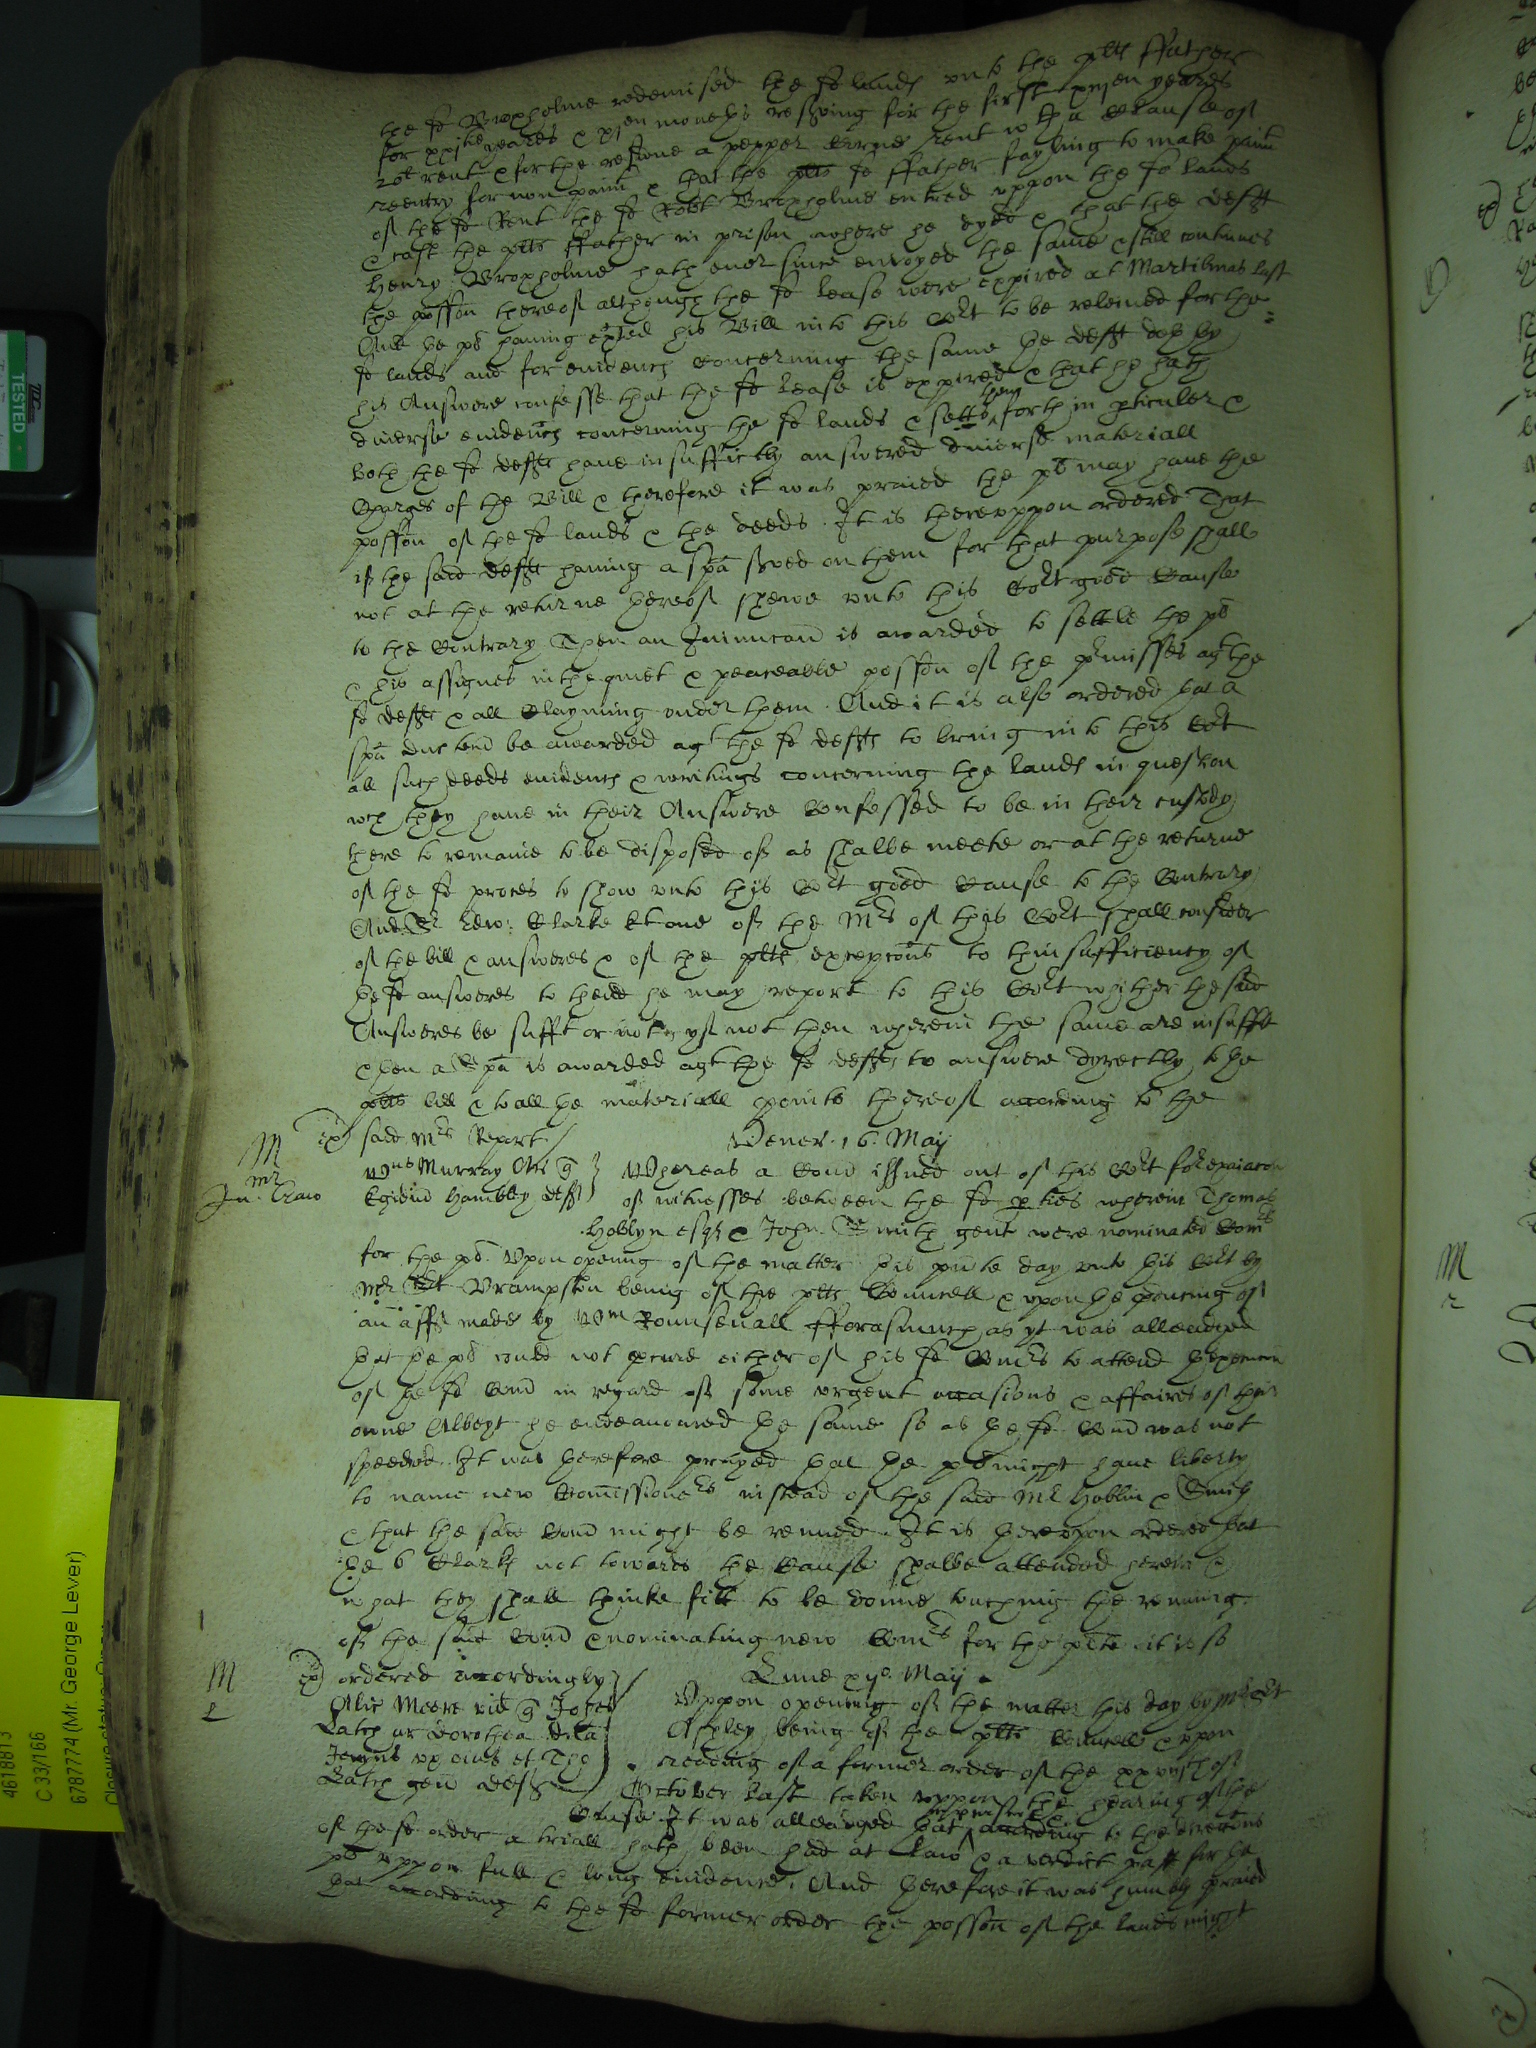 the sd Broxholme redemised the sd lands vnto the plts ffather
for xxj yeares & xj en moneths reserving for the first xvj en yeares
20l rent & for the residue a pepper Corne rent wth a Clause of
reentry for non paimt & that the plts sd ffather fayling to make paimt
of the sd Rent the sd Robt Broxholme entred vppon the sd lands
& cast the plts ffather in prison where he dyed & that the defft
Henry Broxholme hath ever since enioyed the same & still continues
the possion thereof although the sd lease were expired at Martilmas last
And the pl having exhited his Bill into this Cort to be releived for the
sd lands and for evidence Concerning the same the defft doth by
his Answere confesse that the sd lease is expired & that he hath
diverse evidences concerning the sd lands & setts them forth in pticuler &
both the sd deffts have insufficiently answered diverse materiall
Charges of the Bill & therefore it was praied the pl may have the
possion of the sd lands & the deeds. It is therevppon ordered That
if the said deffts having a spa served on them for that purpose shall
not at the returne thereof shewe vnto this Cort good Cause
to the Contrary Then an Iniunccon is awarded to settle the pl
& his assignes in the quiet & peaceable possion of the pmisses agt the
sd deffts & all Clayming vnder them. And it is also ordered that a
spa duc tecu be awarded agt the sd deffts to bring into this Cort
all such deeds evidences & writings concerning the lands in question
wch they have in their Answere Confessed to be in their custody
there to remaine to be disposed of as shalbe meete or at the returne
of the sd proces to show vnto this Cort good Cause to the Contrary
And Sr Edw: Clarke kt one of the Mrs of this Cort shall consider
of the bill & answeres & of the plts excepcons to thinsufficiency of
the sd answeres to thend he may report to this Cort whither the said
Answeres be suffit or not & yf not then wherein the same are insuffit
& then a spa is awarded agt the sd deffts to answere dyrectly to the
plts bill & to all the materiall points thereof according to the
said Mrs Report
Vener. 16. May
M
mr
Jn. Craw
Murray Ar q
Egidiu Hambley deff
Whereas a Comn issued out of this Cort for exaiacon
of witnesses betweene the sd pties wherein Thomas
Hoblyn esqr & John Smith gent were nominated Comrs
for the pl. Vpon opening of the matter this pnte day vnto this Cort by
Mr Brampston being of the plts Councell & vpon the pducing of
an afft made by Wm Rounsevall fforasmuch as yt was alleadged
that the pl could not pcure either of his sd Comrs to attend thexecucon
of the sd Comn in regard of some vrgent occasions & affaires of their
owne Albeyt he endeavoured the same so as the sd Comn was not
speeded. It was therefore prayed that the pl might have liberty
to name new Comissionrs instead of the said Mr Hoblin & Smith
& that the said Comn might be renued. It is therevpon ordered that
the 6 Clarks not towards the Cause shalbe attended herein &
what they shall thinke fitt to be donne touching the renuing
of the said Comn & nominating new Comrs for the plte it is so
ordered accordingly
Lune xix. May
M
Alic Meere vid q Josep
Latch ar Dorothea
Jermis vx eius et Tho
Latch gen deff
Vppon opening of the matter this day by Mr
Apsley being of the plts Councell & vpon
reading of a former order of the xxvijth of
October last taken vppon the hearing of the
Cause It was alleadged that according to the direccons
of the sd order a triall hath been had at Law & a verdict past for the
pl vppon full & long evidence. And therefore it was humbly praied
that according to the sd former order the possion of the lands might
TESTED
4618813
C 33/166
6787774 (Mr. George Lever)